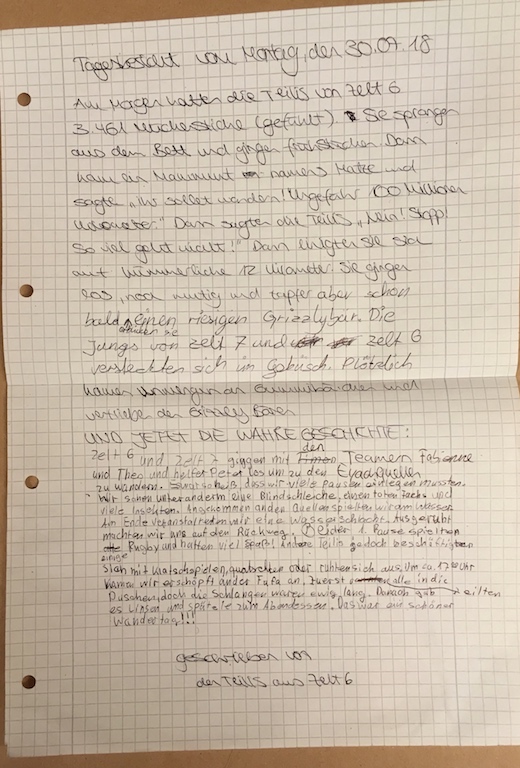 Tagesbericht vom Montag, den 30.07.18
Am Morgen hatten die Teilis von Zelt 6
3.461 Mückenstiche (gefühlt). Sie sprangen
aus dem Bett und gingen frühstücken. Dann
kam ein Mammut namens Matze und
sagte „Ihr sollet wandern! Ungefähr 100 Millionen
Kilometer." Dann sagten die Teilis „Nein! Stopp!
So viel geht nicht!" Dann einigten sie sich
auf kümmerliche 12 Kilometer. Sie gingen
los, noch mutig und tapfer aber schon
bald erblickten sie einen riesigen Grizzlybär. Die
Jungs von Zelt 7 und Zelt 6
versteckten sich im Gebüsch. Plötzlich
kamen Gummibärchen und
vertrieben den Grizzley Bären
UND JETZT DIE WAHRE GESCHICHTE:
Zelt 6 und Zelt 7 gingen mit den Teamern Fabienne
und Theo und helfer Peter los um zu den Quellen
zu wandern. dass wir viele Pausen einlegen mussten.
Wir sahen unter anderm eine Blindschleiche, einen toten Fuchs und
viele Insekten. Angekommen an den Quellen spielten wir am Wasser.
Am Ende veranstalteten wir eine Wasserschlacht. Ausgeruht
machten wir uns auf den Rückweg. Bei der 1. Pause spielten
einige Rugby und hatten viel Spaß! Andere Teilis jedoch beschäftigten
sich mit Matschspielen, quatschten oder ruhten sich aus. Um ca. 17:00 Uhr
kamen wir erschöpft an der Fafa an, zuerst eilten alle in die
Duschen, doch die Schlangen waren ewig lang. Danach gab
es Linsen und spätzle zum Abendessen. Das war ein schöner
Wandertag!!!
geschrieben von
den Teilis aus Zelt 6